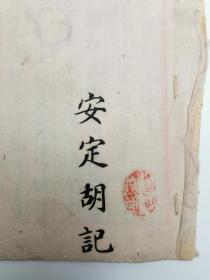 安定胡記